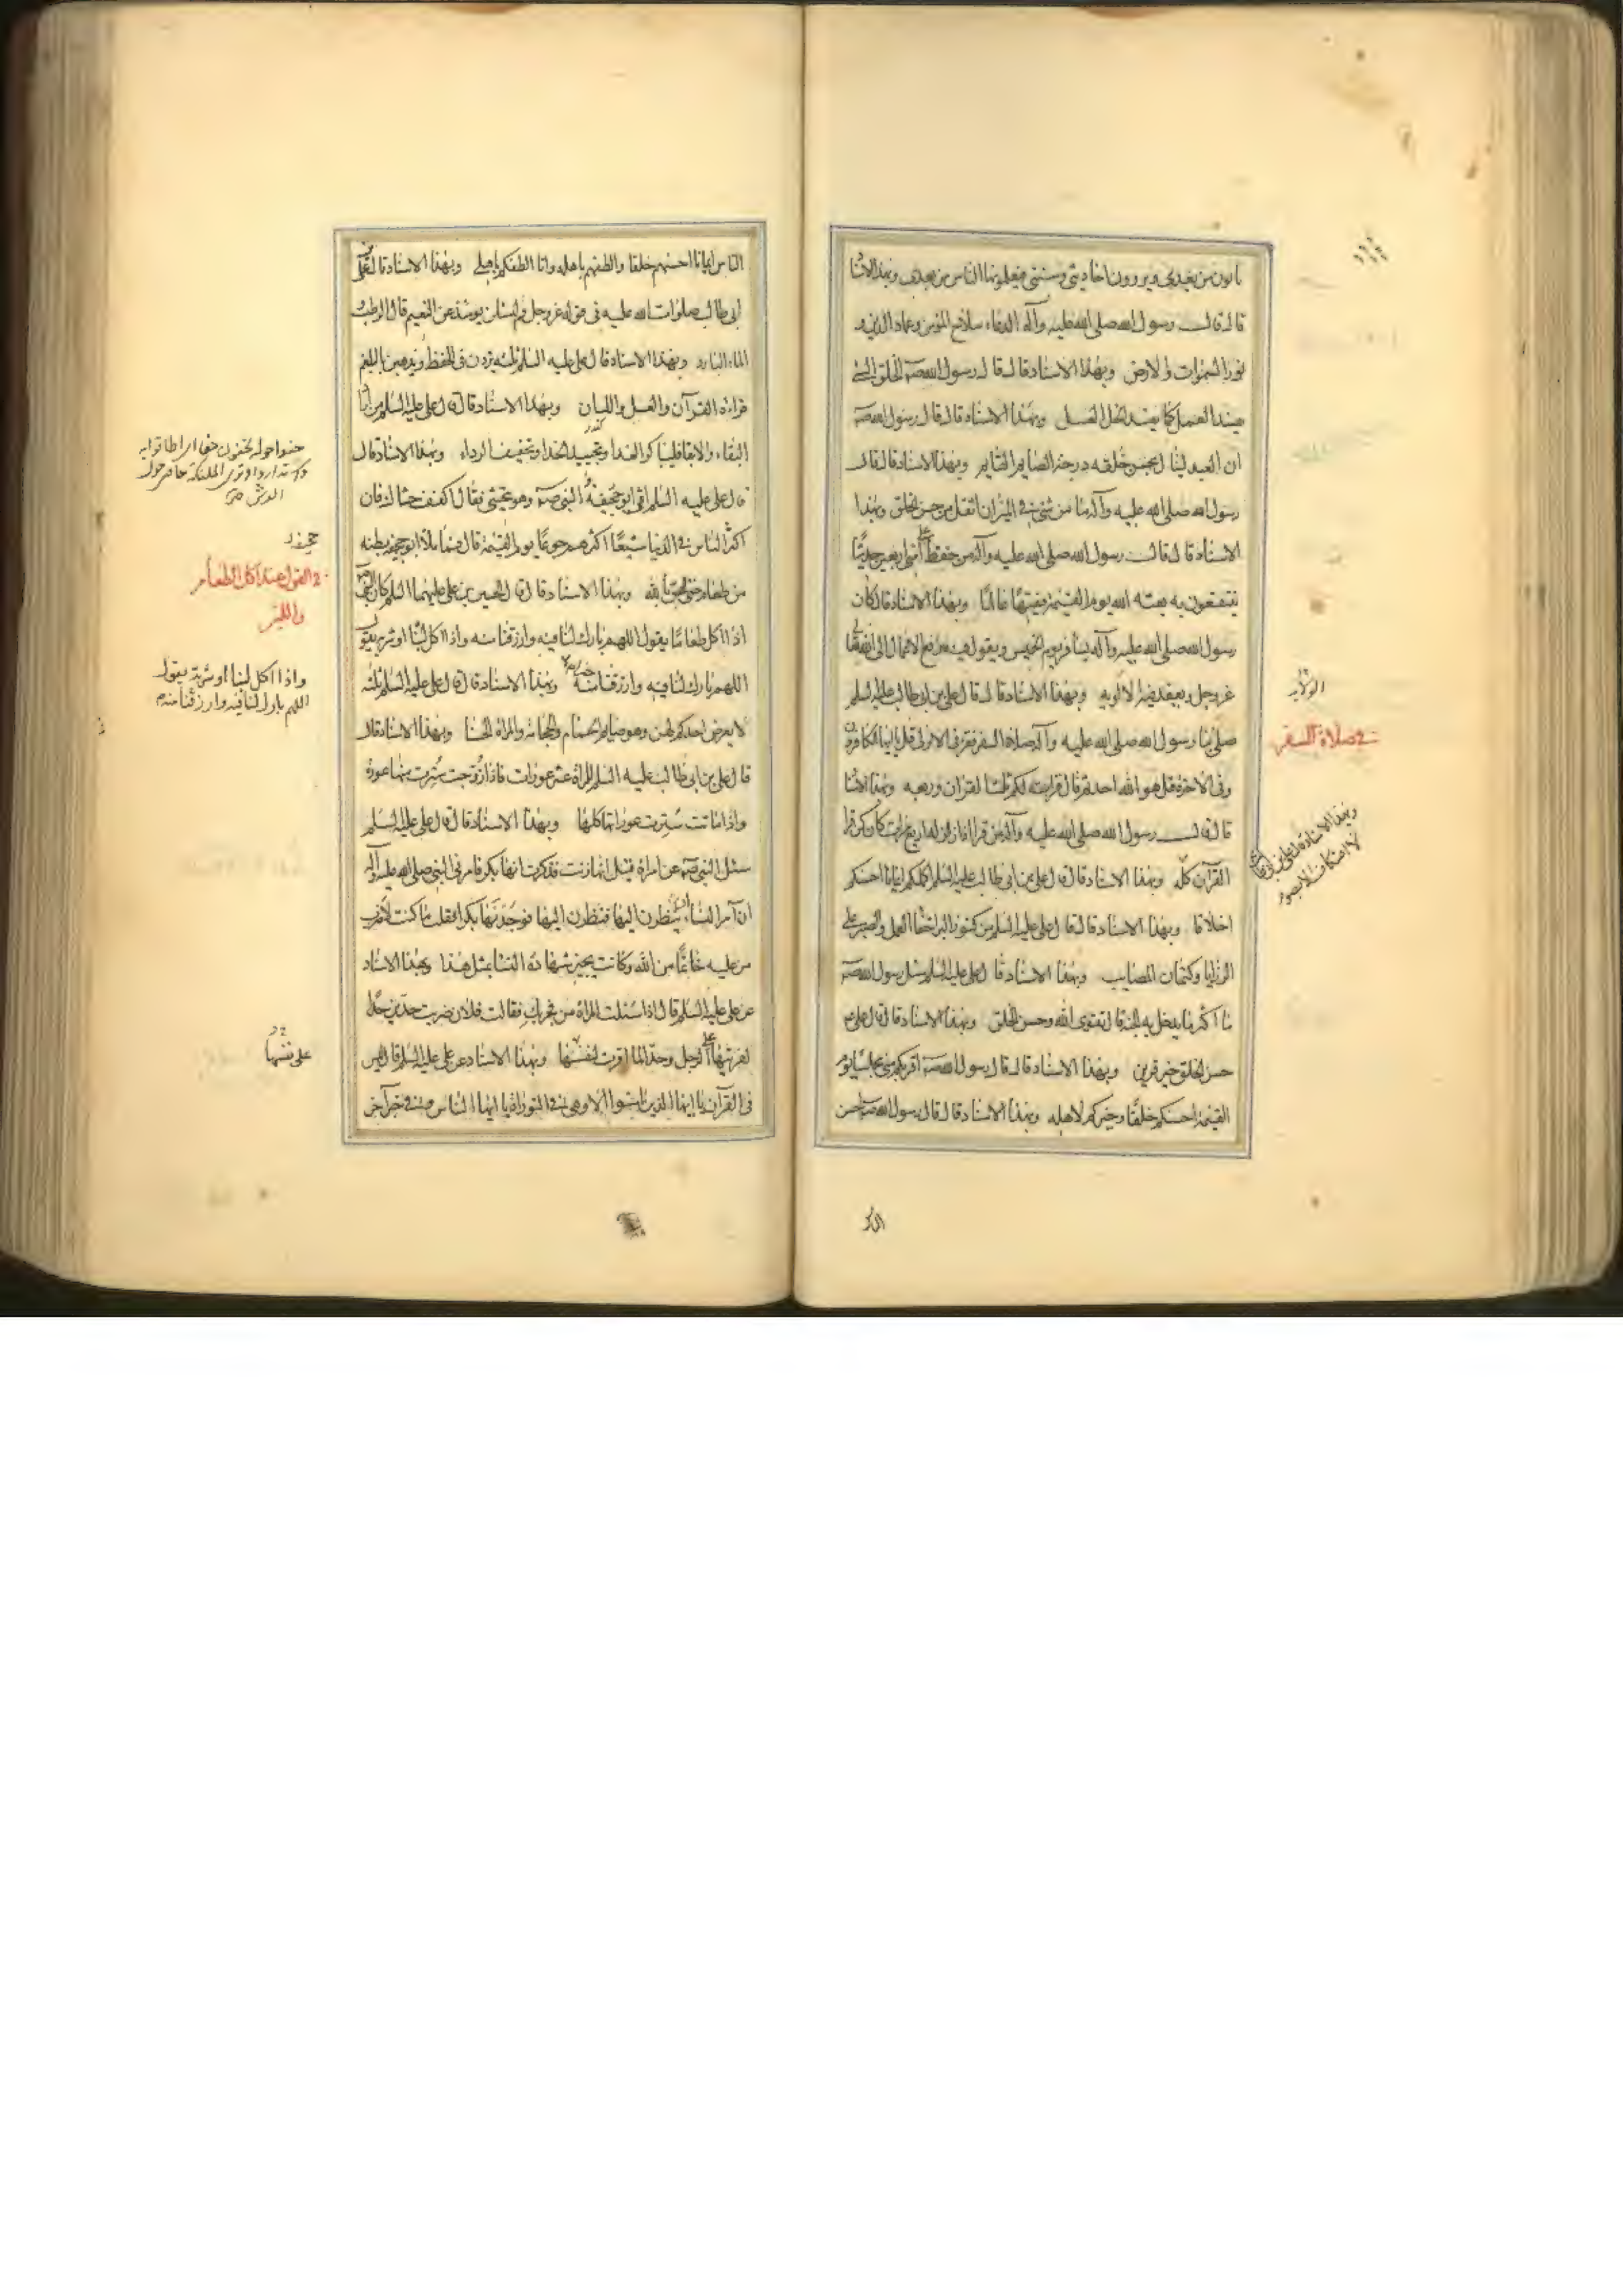 يأتون من بعدى ويروون احاديثى وسنتى فيعلمونها الناس من بعدى وبهذا الاسناد
قال قال رسول الله صلى الله عليه وآله الدعاء سلاح المؤمن وعماد الدين و
نور السموات والارض وبهذا الاسناد قال قال رسول الله صه الخلق السئ
يفسد العمل كما يفسد الخل العسل وبهذا الاسناد قال قال رسول الله صه
ان العبد لينال بحسن خلقه درجة الصايم القايم وبهذا الاسناد قال قال
رسول الله صلى الله عليه وآله ما من شئ فى الميزان اثقل من حسن الخلق وبهذا
الاسناد قال قال رسول الله صلى الله عليه وآله من حفظ على امتى اربعين حديثا
ينتفعون به بعثه الله يوم القيمة فقيها عالما وبهذا الاسناد قال كان
رسول الله صلى الله عليه وآله يسافر يوم الخميس ويقول فيه ترفع الاعمال الى الله
عز وجل ويعقد فيه الالوية وبهذا الاسناد قال قال على بن ابى طالب عليه السلم
صلى بنا رسول الله صلى الله عليه وآله صلاة السفر فقرء فى الاولى قل يا ايها الكافرون
وفى الاخرة قل هو الله احد ثم قال قرات لكم ثلث القران وربعه وبهذا الاسناد
قال قال رسول الله صلى الله عليه وآله من قرا اذا زلزلت اربع مرات كان كمن قرا
القرآن كله وبهذا الاسناد قال قال على بن ابى طالب عليه السلم اكملكم ايمانا احسنكم
اخلاقا وبهذا الاسناد قال قال على عليه السلم من كنوز البر اخفاء العمل والصبر على
الرزايا وكتمان المصايب وبهذا الاسناد قال على عليه السلم سئل رسول الله صه
ما اكثر ما يدخل به الجنة قال تقوى الله وحسن الخلق وبهذا الاسناد قال قال على ع
حسن الخلق خير قرين وبهذا الاسناد قال قال رسول الله صه اقربكم منى مجلسا يوم
القيمة احسنكم خلقا وخيركم لاهله وبهذا الاسناد قال قال رسول الله صه احسن
فى صلاة السفر
وبهذا الاسناد قال على بن ابى طالب
لا اعتكاف الا بصوم
الناس ايمانا احسنهم خلقا والطفهم باهله وانا الطفكم باهلى وبهذا الاسناد قال قال على بن
ابى طالب صلوات الله عليه فى قوله عز وجل ثم لتسئلن يومئذ عن النعيم قال الرطب و
الماء البارد وبهذا الاسناد قال على عليه السلم ثلثه يزدن فى الحفظ ويذهبن بالبلغم
قراءة القرآن والعسل واللبان وبهذا الاسناد قال قال على عليه السلم من اراد
البقاء ولا بقاء فليباكر الغداء وتجييد الحذاء وتخفيف الرداء وبهذا الاسناد قال
قال على عليه السلم اتى ابو جحيفة النبى صه وهو يتجشى فقال اكفف جشاك فان
اكثر الناس فى الدنيا شبعا اكثرهم جوعا يوم القيمة قال فما ملا ابو جحيفة بطنه
من طعام حتى لحق بالله وبهذا الاسناد قال قال الحسين بن على عليهما السلم كان النبى
اذا اكل طعاما يقول اللهم بارك لنا فيه وارزقنا منه واذا اكل لبنا او شربه يقول
اللهم بارك لنا فيه وارزقنا منه وبهذا الاسناد قال قال على عليه السلم ثلثه
لا يعرض احدكم لهن وهو صايم الحمام والحجامة والمراة الحسنا وبهذا الاسناد قال
قال على بن ابى طالب عليه السلم للمراة عشر عورات فاذا زوجت سترت منها عورة
واذا ماتت سترت عوراتها كلها وبهذا الاسناد قال قال على عليه السلم
سئل النبى صه عن امراة قيل انها زنت فذكرت انها بكر فامرنى النبى صلى الله عليه وآله
ان آمر النساء ينظرن اليها فنظرن اليها فوجدنها بكرا فقلت ما كنت لاضرب
من عليه خاتما من الله وكانت يجيز شهادة النسا بمثل هذا وبهذا الاسناد
عن على عليه السلم قال اذا سئلت المراة من فجر بك فقالت فلان ضربت حدين حدا
لفريتها على الرجل وحدا لما اقرت لنفسها وبهذا الاسناد عن على عليه السلم قال ليس
فى القرآن يا ايها الذين امنوا الا وهى فى التوراة يا ايها الناس وفى خبر آخر
جحيفه
فى القول عند اكل الطعام
واللبن
واذا اكل لبنا او شربه يقول
اللهم بارك لنا فيه وارزقنا منه
على نفسها